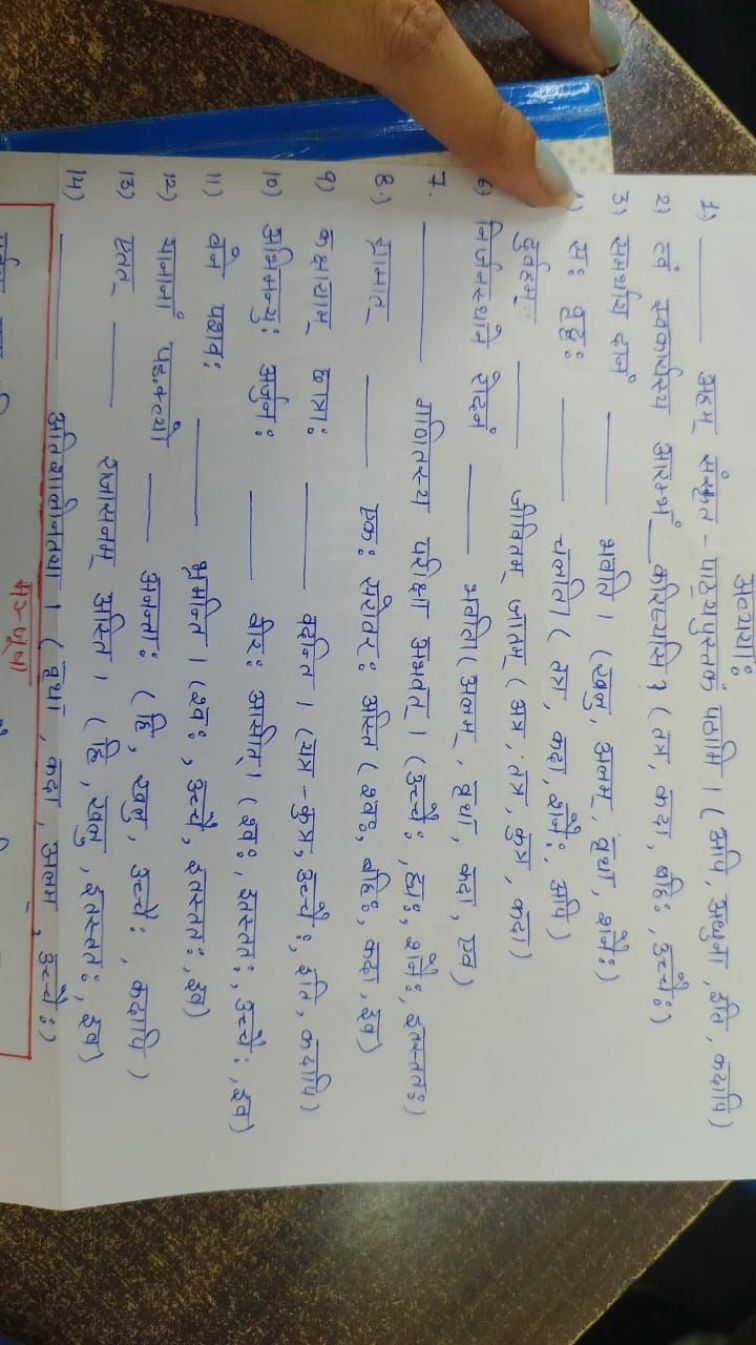 अव्ययाः
1) ______ अहम् संस्कृत - पाठ्यपुस्तकं पठामि । ( अपि, अधुना, इति, कदापि )
2) त्वं स्वकार्यस्य आरम्भं ___ करिष्यसि ? ( तत्र, कदा, बहिः, उच्चैः )
3) समर्थाय दानं ______ भवति । ( खलु, अलम्, वृथा, शनैः )
4) सः वृद्धः ______ चलति । ( तत्र, कदा, शनैः, अपि )
दुर्वहम् ______ जीवितम् जातम् ( अत्र, तत्र, कुत्र, कदा )
6) निर्जनस्थाने रोदनं ______ भवति । ( अलम्, वृथा, कदा, एव )
7. ______ गणितस्य परीक्षा अभवत् । ( उच्चैः, ह्यः, शनैः, इतस्ततः )
8.) ग्रामात् ______ एकः सरोवरः अस्ति ( श्वः, बहिः, कदा, इव )
9) कक्षायाम् छात्राः ______ वदन्ति । ( यत्र - कुत्र, उच्चैः, इति, कदापि )
10) अभिमन्युः अर्जुनः ______ वीरः आसीत् । ( श्वः, इतस्ततः, उच्चैः, इव )
11) वने पशवः ______ भ्रमन्ति । ( श्वः, उच्चै, इतस्ततः, इव )
12) यानानां पङ्क्तयो ______ अनन्ताः ( हि, खलु, उच्चैः, कदापि )
13) एतत् ______ राजासनम् अस्ति । ( हि, खलु, इतस्ततः, इव )
14) ______ अतिमानितया । ( वृथा, कदा, अलम, उच्चैः )